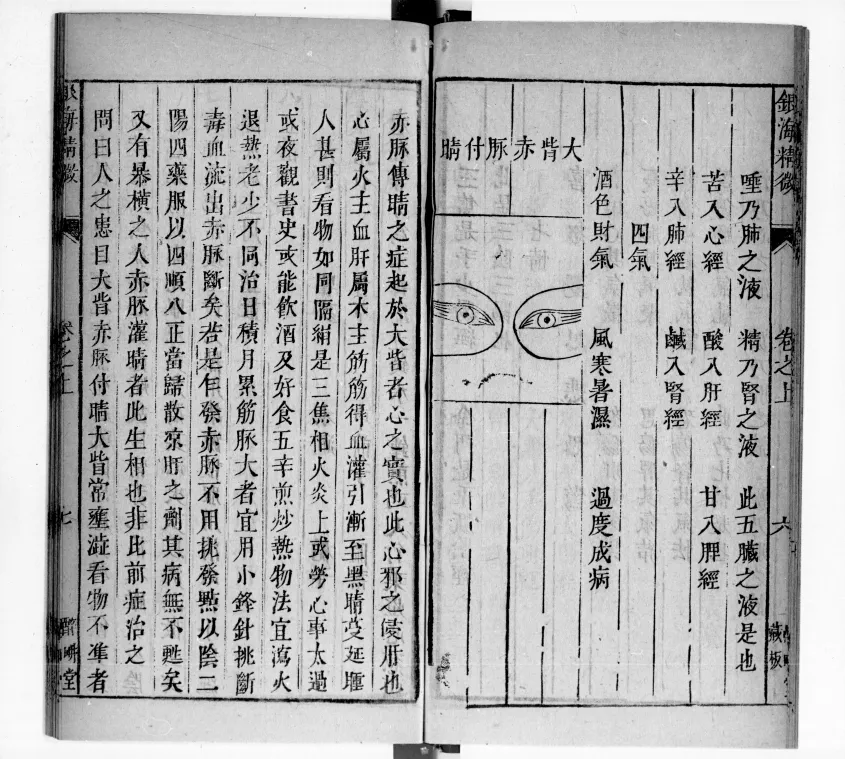 銀海精微
卷之上
六
藏板
唾乃肺之液 精乃腎之液 此五臟之液是也
苦入心經 酸入肝經 甘入脾經
辛入肺經 鹹入腎經
四氣
酒色財氣 風寒暑濕 過度成病
大眥赤脉付睛
赤脉傳睛之症起於大眥者心之實也此心邪之侵肝也
心属火主血肝屬木主筋筋得血灌引漸至黑睛蔓延
人甚則看物如同隔絹是三焦相火炎上或勞心事太過
或夜觀書史或能飲酒及好食五辛煎炒热物法宜瀉火
退热老少不同治日積月累筋脉大者宜用小鋒針挑斷
毒血流出赤脉斷矣若是乍發赤脉不用挑發點以陰二
陽四藥服以四順八正當歸散凉肝之劑其病無不甦矣
又有暴橫之人赤脉灌睛者此生相也非比前症治之
問曰人之患目大眥赤脉付睛大眥常壅澁看物不凖者
海精微
卷之上
七
堂